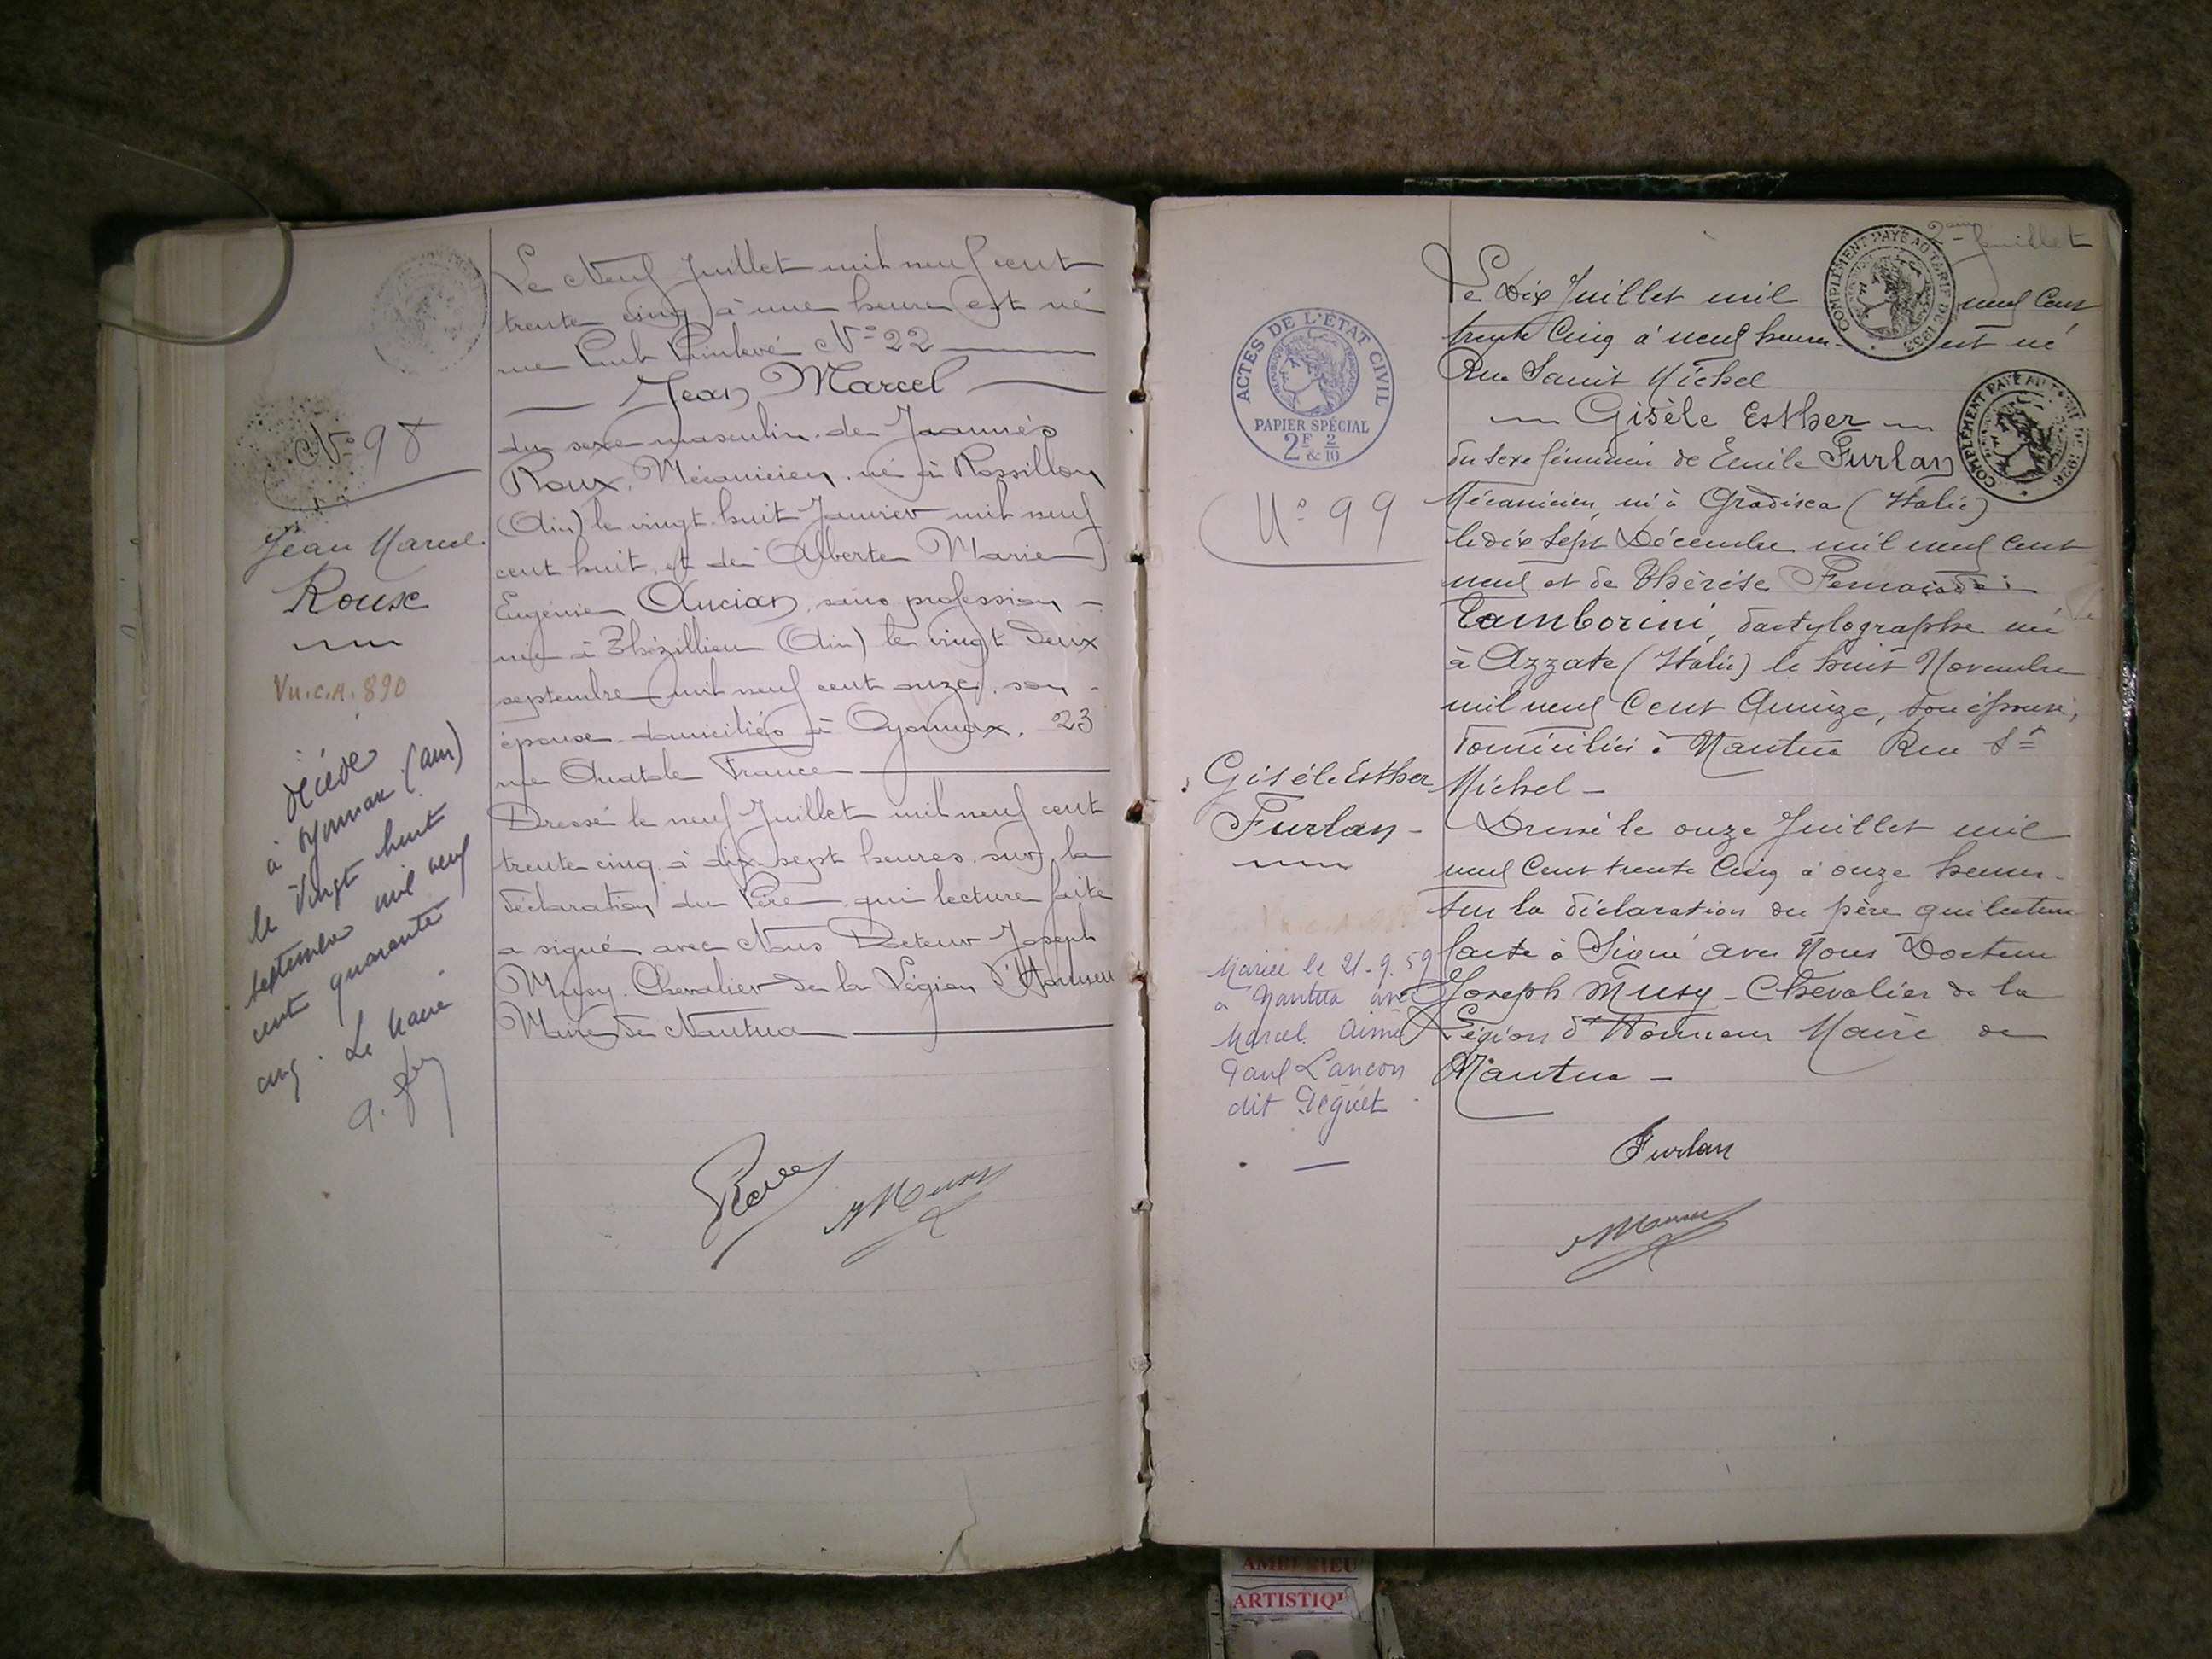 Le Neuf Juillet mil neuf cent
trente cinq à une heure est né
rue Paul Painlevé N° 22
Jean Marcel
du sexe masculin de Joannès
Roux, Mécanicien, né à Rossillon
(Ain) le vingt huit Janvier mil neuf
cent huit, et de Alberte Marie
Eugénie Ancian, sans profession
née à Thézillieu (Ain) le vingt deux
septembre mil neuf cent onze, son
épouse domiciliés à Oyonnax, 23
rue Anatole France
Dressé le neuf Juillet mil neuf cent
trente cinq à dix-sept heures, sur la
déclaration du Père, qui lecture faite
a signé avec Nous Docteur Joseph
Musy, Chevalier de la Légion d'Honneur
Maire de Nantua
N° 98
Jean Marcel
Roux
Vu.C.A. 890
décédé
à Oyonnax (ain)
le vingt huit
septembre mil neuf
cent quarante
cinq. Le Maire
Roux
Musy
2ème feuillet
Le Dix Juillet mil neuf Cent
trente Cinq à neuf heures est né
Rue Saint Michel
Gisèle Esther
du sexe féminin de Emile Furlan
Mécanicien, né à Gradisca (Italie)
le dix sept Décembre mil neuf cent
neuf et de Thérèse
Tamborini, dactylographe née
à Azzate (Italie) le huit Novembre
mil neuf Cent Quinze, son épouse,
domiciliés à Nantua Rue St
Michel -
Dressé le onze Juillet mil
neuf Cent trente Cinq à onze heures
sur la déclaration du père qui lecture
faite à Signé avec Nous Docteur
Joseph Musy - Chevalier de la
Légion d'Honneur Maire de
Nantua -
Furlan
Musy
ACTES DE L'ÉTAT CIVIL
RÉPUBLIQUE FRANÇAISE
PAPIER SPÉCIAL
2F & 2/10
COMPLÉMENT PAYÉ AU TARIF DE 1933
COMPLÉMENT PAYÉ AU TARIF DE 1926
N° 99
Gisèle Esther
Furlan -
Mariée le 21-9.59
à Nantua avec
Marcel Aimé
Paul Lançon
dit Péguet
AMBERIEU
ARTISTIQU